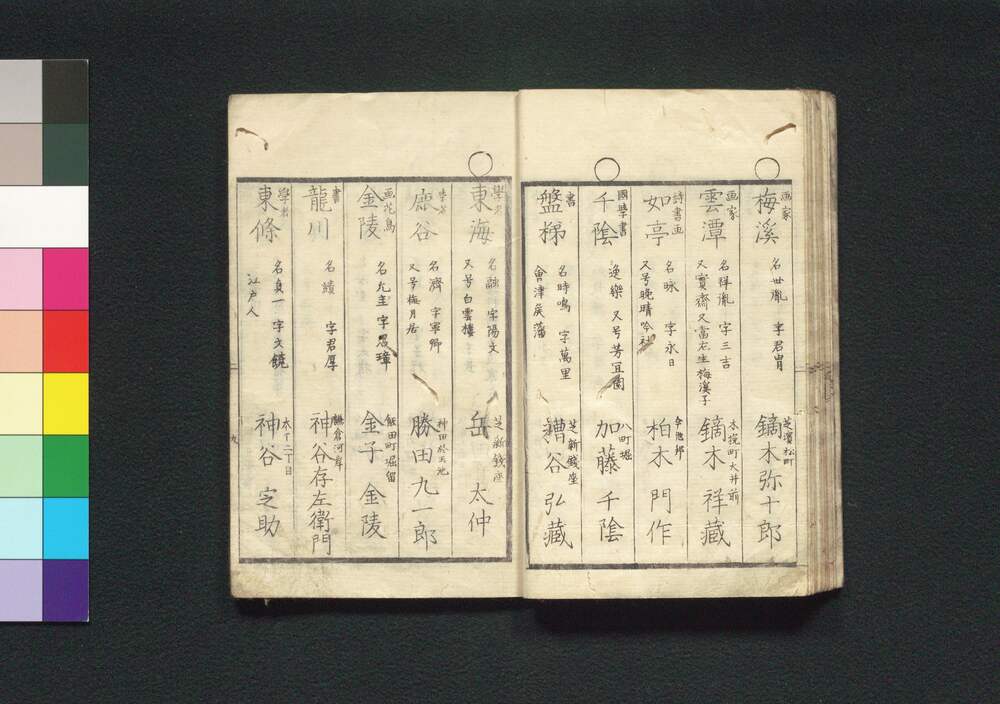 画家
梅溪
名世胤 字君冑
芝濱松町
鏑木弥十郎
画家
雲潭
名祥胤 字三吉
又實齋又當左生梅溪子
木挽町大井前
鏑木祥藏
詩書画
如亭
名昶 字永日
又号晩晴吟社
柏木門作
國學書
千蔭
逸樂 又号芳宜園
八町堀
加藤千蔭
書
盤梯
名時鳴 字萬里
會津矦藩
芝新錢座
糟谷弘藏
學者
東海
名融 字陽文
又号白雲樓
芝新錢座
岳太仲
學者
鹿谷
名濟 字寧卿
又号梅月居
神田於玉池
勝田九一郎
画花鳥
金陵
名允圭 字君璋
飯田町堀留
金子金陵
書
龍川
名績 字君厚
鎌倉河岸
神谷存左衛門
學者
東條
名良一 字文鏡
江戸人
神谷定助
九